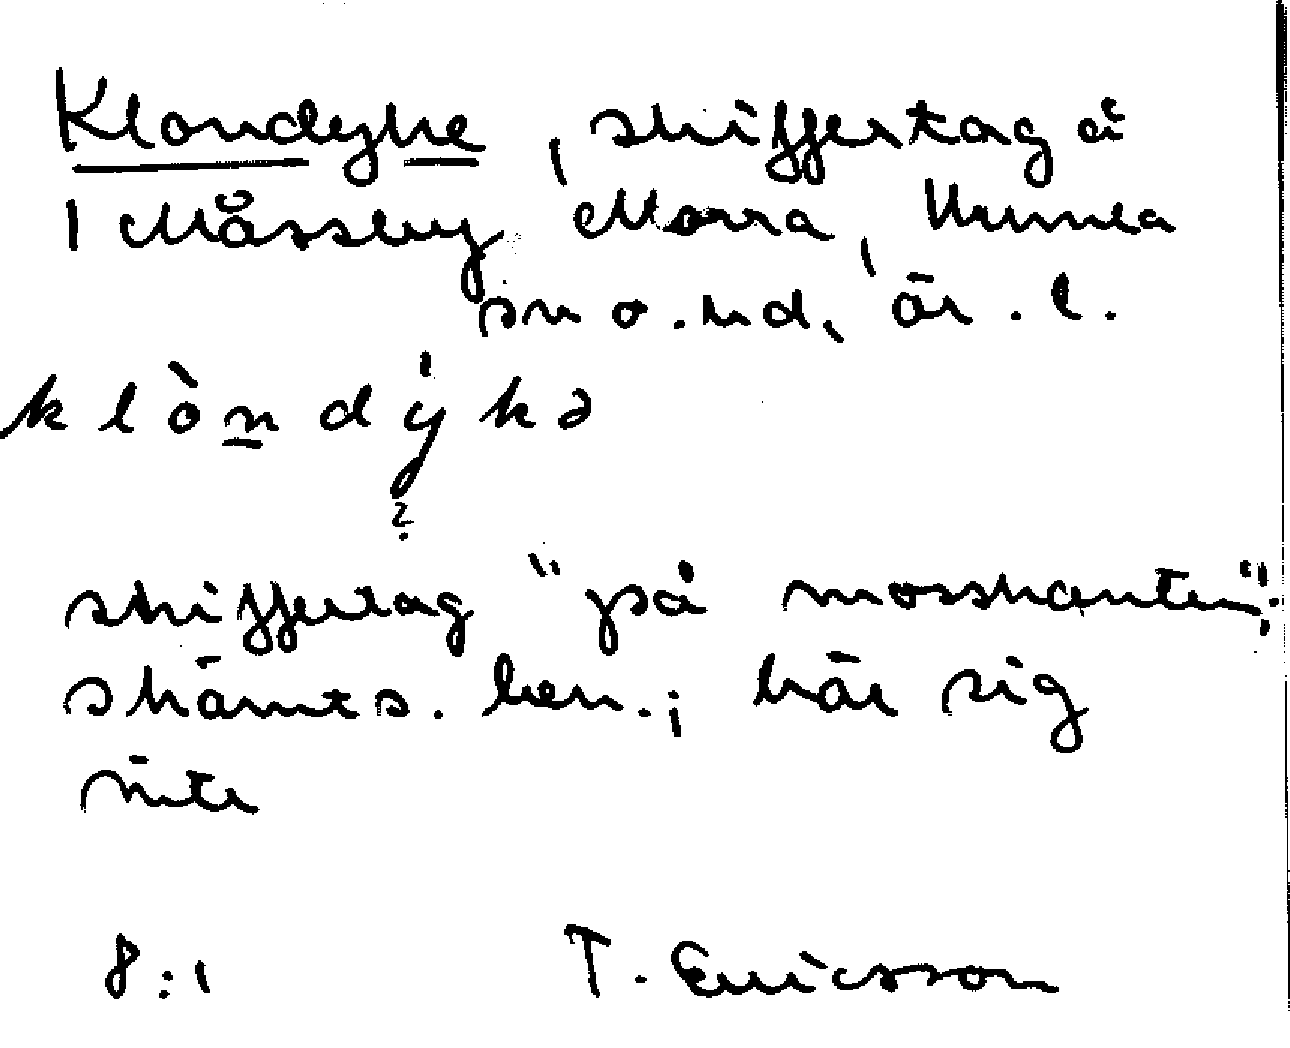 Klondyke, skiffertag å
1 Måssby Norra, Kumla
sn o. hd, Ör. l.
k l ò n d ý k ə
?
skiffertag "på mosskanten";
skämts. ben.; bär sig
inte
8:1 T. Ericsson